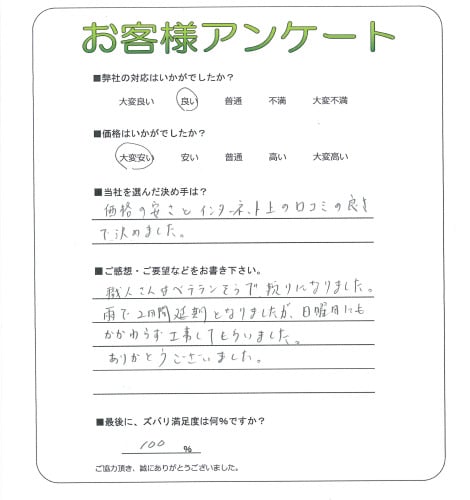 お客様アンケート
■弊社の対応はいかがでしたか？
大変良い 良い 普通 不満 大変不満
■価格はいかがでしたか？
大変安い 安い 普通 高い 大変高い
■当社を選んだ決め手は？
価格の安さとインターネット上の口コミの良さ
で決めました。
■ご感想・ご要望などをお書き下さい。
職人さんはベテランそうで、頼りになりました。
雨で2日間延期となりましたが、日曜日にも
かかわらず工事してもらいました。
ありがとうございました。
■最後に、ズバリ満足度は何％ですか？
100 ％
ご協力頂き、誠にありがとうございました。